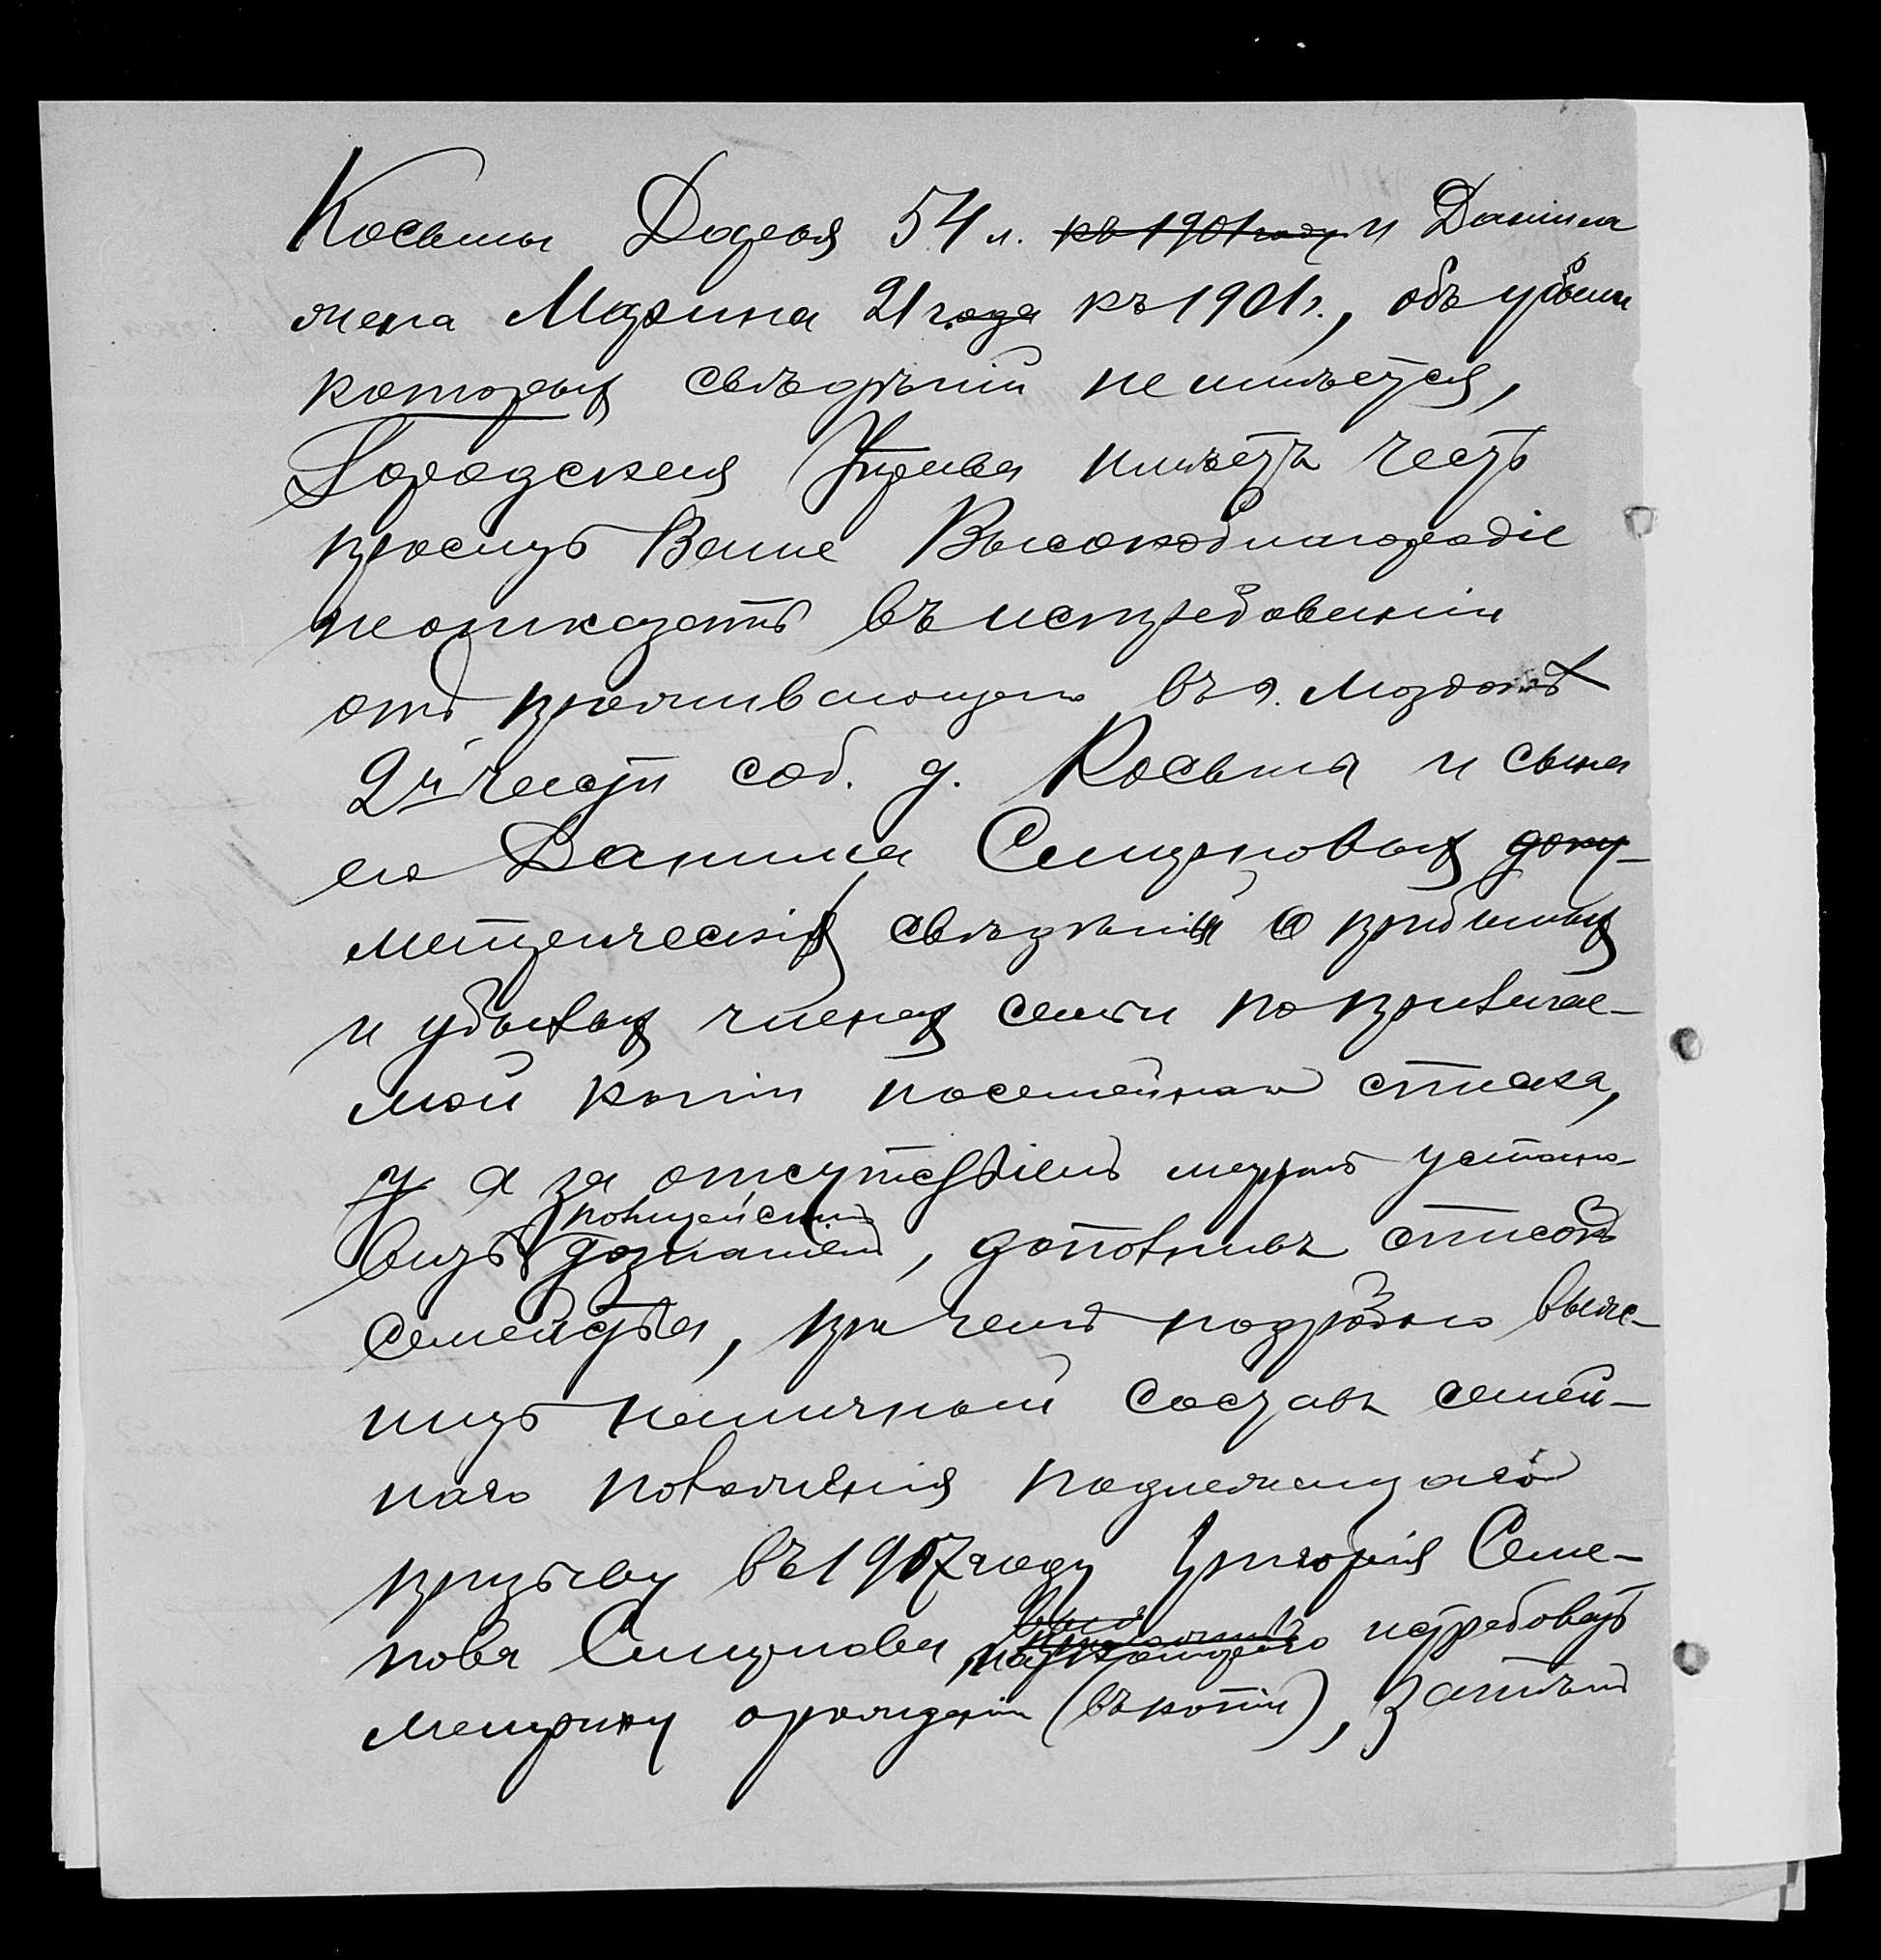 Косьмы Дорья 54 л. къ 1901 году и Данiила
жена Марина 21 года къ 1901 г., объ убыли
которых свѣдѣнiй не имѣется,
Городская Управа имѣетъ честь
просить Ваше Высокоблагородiе
неотказать въ истребованiи
отъ проживающаго въ г. Моздокѣ
2й части соб. д. Косьмы и сына
его Данiила Смирновых доку-
метрических свѣдѣнiй о прибылых
и убылых членах семьи по прилагае-
мой копiи посемейнаго списка,
у а за отсутствiемъ метрикъ устано-
вить полицейскимъ дознанiемъ, дополнивъ списокъ
семейства, при чемъ подробно выяс-
нить наличный составъ семей-
наго положенiя подлежащаго
призыву въ 1907 году Григорiя Семе-
нова Смирнова, истребовать
метрику о рожденiи (въ копiи), затѣмъ